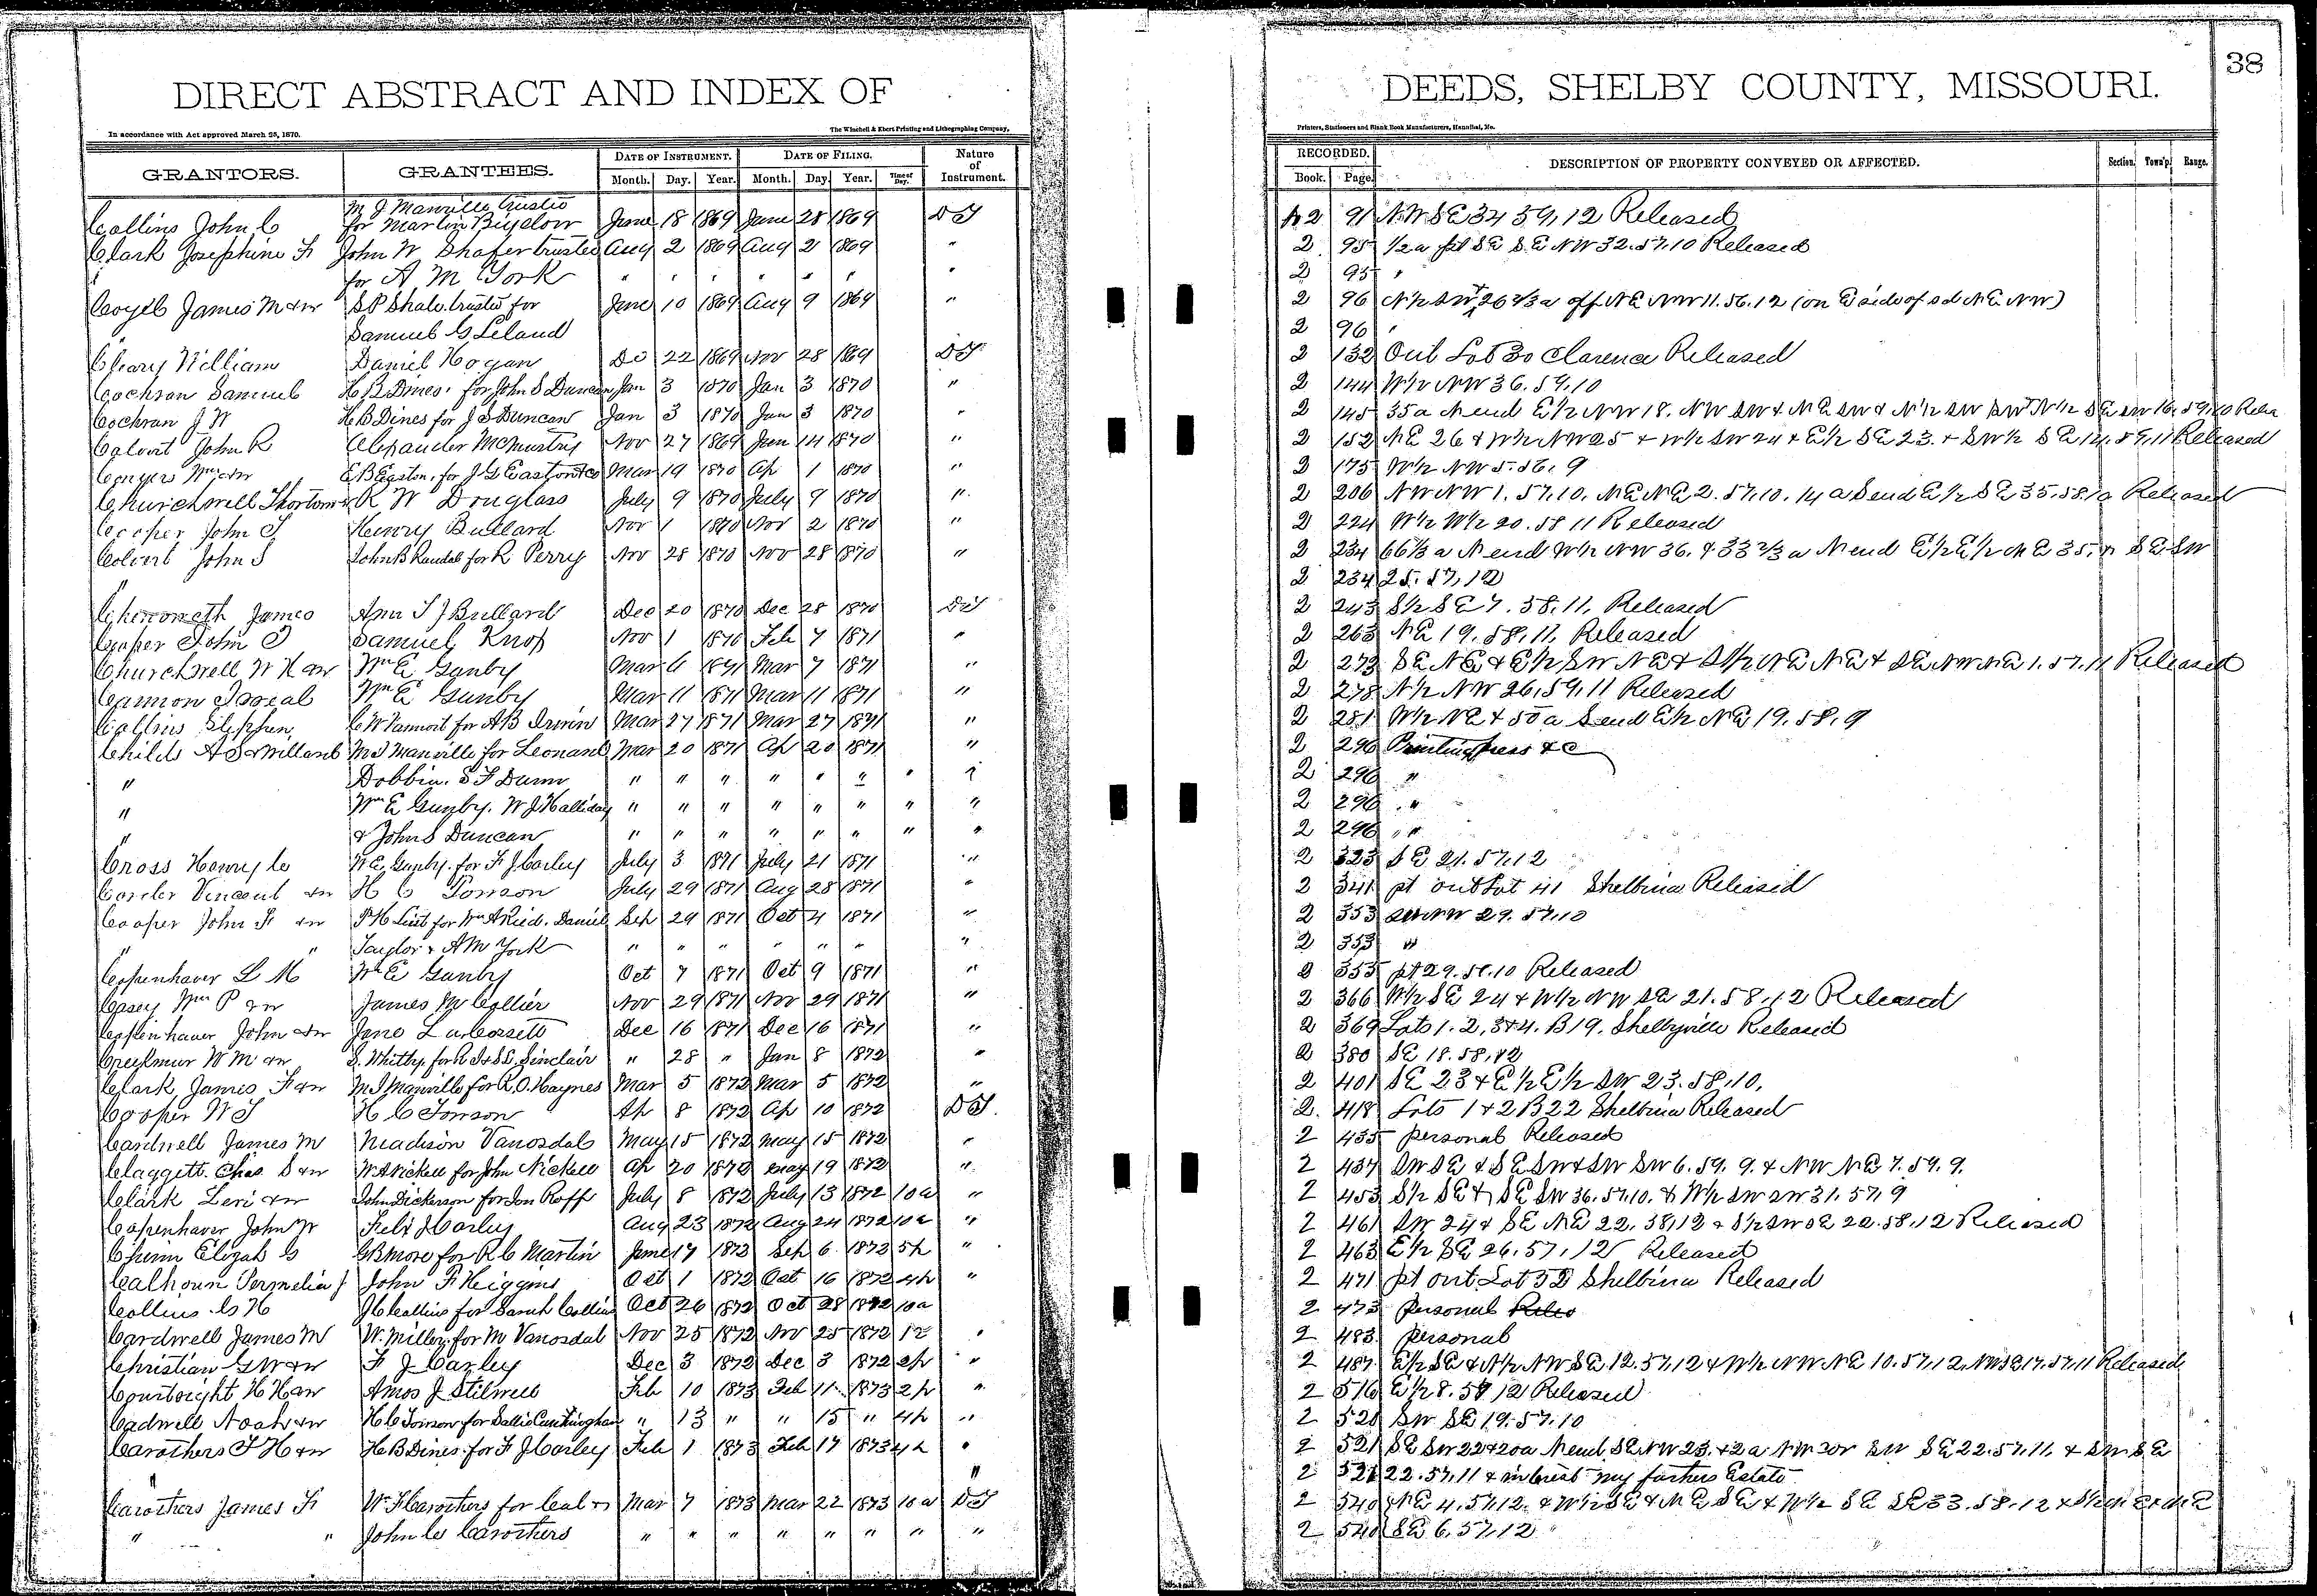 38
DIRECT ABSTRACT AND INDEX OF DEEDS, SHELBY COUNTY, MISSOURI.
In accordance with Act approved March 25, 1870. The Winchell & Ebert Printing and Lithographing Company, Printers, Stationers and Blank Book Manufacturers, Hannibal, Mo.
GRANTORS. GRANTEES. DATE OF INSTRUMENT. DATE OF FILING. Nature of Instrument. RECORDED. DESCRIPTION OF PROPERTY CONVEYED OR AFFECTED. Section. Town'p. Range.
Month. Day. Year. Month. Day. Year. Time of Day. Book. Page.
M J Manville trustee
Collins John C for Martin Bigelow June 18 1869 June 28 1869 DT 2 91 NW SE 34 59, 12 Released
Clark Josephine F John W Shafer trustee Aug 2 1869 Aug 2 1869 " 2 95 1/2 a pt SE SE NW 32.57.10 Released
" for A M York " " " " " " " 2 95 "
James M & w S P Shale trustee for June 10 1869 Aug 9 1869 " 2 96 N½ SW 26 2/3 a off NE NW 11.56.12 (on E side of sd NE NW)
" Samuel G Leland 2 96 "
Cleary William Daniel Hogan 22 1869 Nov 28 1869 DT 2 132 Out Lot 30 Clarence Released
Cochran Samuel H B Dines for John S Duncan Jan 3 1870 Jan 3 1870 " 2 144 W½ NW 36.59.10
Cochran J W H B Dines for J S Duncan Jan 3 1870 Jan 3 1870 " 2 145 35 a N end E½ NW 18. NW SW & NE SW & N½ SW SW & N½ SE SW 16.59.10 Rele
Calvert John R Alexander McMurtry Nov 27 1869 Jan 14 1870 " 2 152 NE 26 & W½ NW 25 & W½ SW 24 & E½ SE 23. & SW½ SE 14.59.11 Released
Conyers Wm & w E B Easton, for J G Easton & Co Mar 19 1870 Ap 1 1870 " 2 175 W½ NW 5.56.9
Churchwell Thornton & R W Douglass July 9 1870 July 9 1870 " 2 206 NW NW 1.57.10, NE NE 2.57.10. 14 a S end E½ SE 35.58.10 Released
Cooper John T Henry Bullard Nov 1 1870 Nov 2 1870 " 2 224 W½ W½ 20.58 11 Released
Colvert John S John B Randal for R Perry Nov 28 1870 Nov 28 1870 " 2 234 66⅔ a N end W½ NW 36. & 33⅔ a N end E½ E½ NE 35. & SE SW
" 2 234 25.57,12
Chenoweth James Ann T J Bullard Dec 20 1870 Dec 28 1870 DT 2 243 S½ SE 7.58,11, Released
Cooper John T Samuel Knox Nov 1 1870 Feb 7 1871 " 2 263 NE 19.58,11, Released
Churchwell W H & w Wm E Gunby Mar 6 1871 Mar 7 1871 " 2 273 SE NE & E½ SW NE & S½ NE NE & SE NW NE 1.57.11 Released
Cannon Isreal Wm E Gunby Mar 11 1871 Mar 11 1871 " 2 278 N½ NW 26,59,11 Released
Collins Stephen C W Vanvort for A B Irwin Mar 27 1871 Mar 27 1871 " 2 281 W½ NE & 50 a S end E½ NE 19.58.9
Childs A S & Willard M J Manville for Leonard Mar 20 1871 Ap 20 1871 2 296 Printing press & C
" Dobbin. S F Dunn " " " " " " " " 2 296 "
" Wm E Gunby. W J Halliday " " " " " " " " 2 296 "
" & John S Duncan " " " " " " " " 2 296 "
Cross Henry C W E Gunby. for F J Carley July 3 1871 July 21 1871 " 2 323 SE 21.57.12
Corder Vincent & w H C Tonson July 29 1871 Aug 28 1871 " 2 341 pt out Lot 41 Shelbina Released
Cooper John F & w P H List for Wm A Reid. Daniel Sep 29 1871 Oct 4 1871 " 2 353 SW NW 29.57.10
" " Taylor & A M York " " " " " " " 2 353 "
Copenhaver L M Wm E Gunby Oct 7 1871 Oct 9 1871 " 2 355 pt 29.58.10 Released
Casey Wm P & w James M Collier Nov 29 1871 Nov 29 1871 " 2 366 W½ SE 24 & W½ NW SE 21.58.12 Released
Copenhaver John & w Jane Lacossett Dec 16 1871 Dec 16 1871 " 2 369 Lots 1.2,3&4. B19. Shelbyville Released
Creekmur W M & w S. Whitby, for R J & S D. Sinclair " 28 " Jan 8 1872 " 2 380 SE 18.58,12
Clark James F & w M J Manville for R. O. Haynes Mar 5 1872 Mar 5 1872 " 2 401 SE 23 & E½ E½ SW 23.58,10,
Cooper W T H C Tonson Ap 8 1872 Ap 10 1872 DT. 2. 418 Lots 1 & 2 B22 Shelbina Released
Cardwell James M Madison Vanosdal May 15 1872 May 15 1872 " 2 435 personal Released
Claggett Chas S & w W A Nickell for John Nickell Ap 20 1872 May 19 1872 " 2 437 SW SE & SE SW & SW SW 6.59.9. & NW NE 7.59.9.
Clark Levi & w John Dickerson for Jon Roff July 8 1872 July 13 1872 10a " 2 453 S½ SE & SE SW 36.57.10. & W½ SW SW 31.57,9
Copenhaver John W Felix J Carley Aug 23 1872 Aug 24 1872 10a " 2 461 SW 24 & SE NE 22.58,12 & S½ SW SE 22.58,12 Released
Chinn Elizah G G B More for R C Martin June 17 1872 Sep 6 1872 5p " 2 463 E½ SE 26.57,12 Released
Calhoun Permelia J John F Higgins Oct 1 1872 Oct 16 1872 4p " 2 471 pt out Lot 52 Shelbina Released
Collins G H J C Collins for Sarah Collins Oct 26 1872 Oct 28 1872 10a 2 473 personal
Cardwell James M W. Miller, for M Vanosdal Nov 25 1872 Nov 25 1872 12 " 2 483 personal
Christian G W & w F J Carley Dec 3 1872 Dec 3 1872 2p " 2 487 E½ SE & N½ NW SE 12.57,12 & W½ NW NE 10.57,12, NW SE 17.57,11 Released
Courtright H H & w Amos J Stilwell Feb 10 1873 Feb 11 1873 2p " 2 516 E½ 8.57 12 Released
Cadwell Noah & w H C Tonson for Sallie Cunningham " 13 " " 15 " 4p " 2 520 SW SE 19.57.10
Carothers T H & w H B Dines for F J Carley Feb 1 1873 Feb 17 1873 4p " 2 521 SE SW 22 & 20a N end SE NW 23. & 2a NW cor SW SE 22.57,11, & SW SE
" " 2 521 22.57,11 & interest my fathers Estate
Carothers James F W F Carothers for Cal & Mar 7 1873 Mar 22 1873 10a DT 2 540 NE 4.57.12. & W½ SE & NE SE & W½ SE SE 33.58.12 &
" " John C Carothers " " " " " " " " 2 540 SE 6.57,12